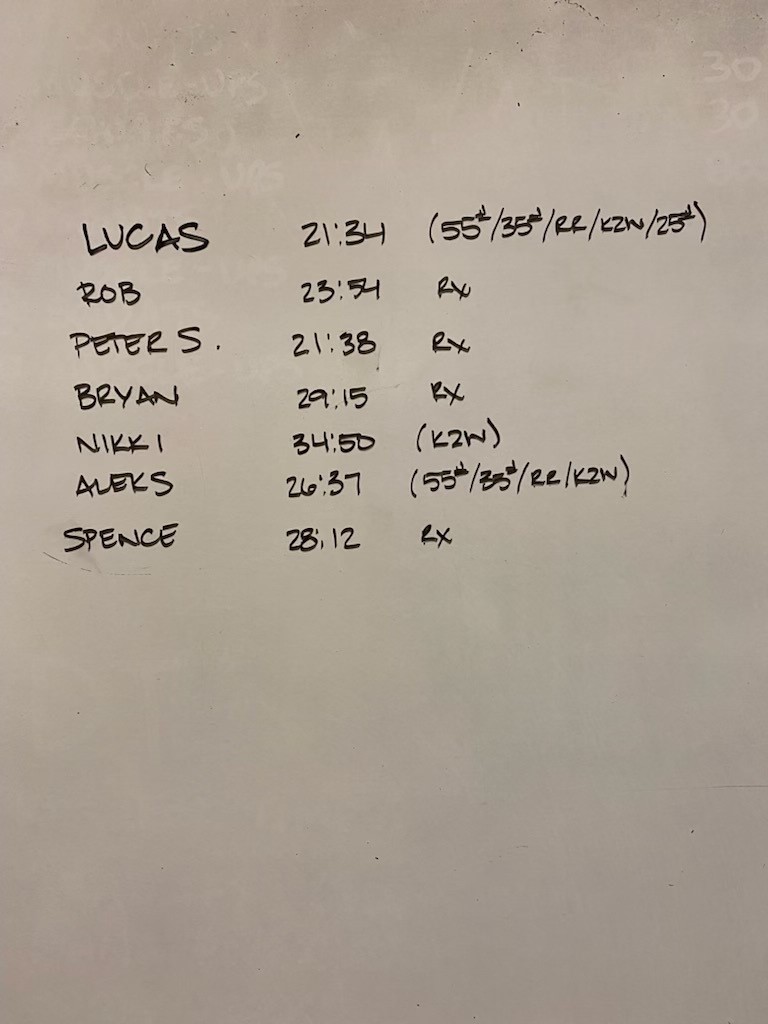 30
30
LUCAS 21:34 (55#/35#/RR/K2W/25#)
ROB 23:54 RX
PETER S. 21:38 RX
BRYAN 29:15 RX
NIKKI 34:50 (K2W)
ALEKS 26:37 (55#/35#/RR/K2W)
SPENCE 28:12 RX